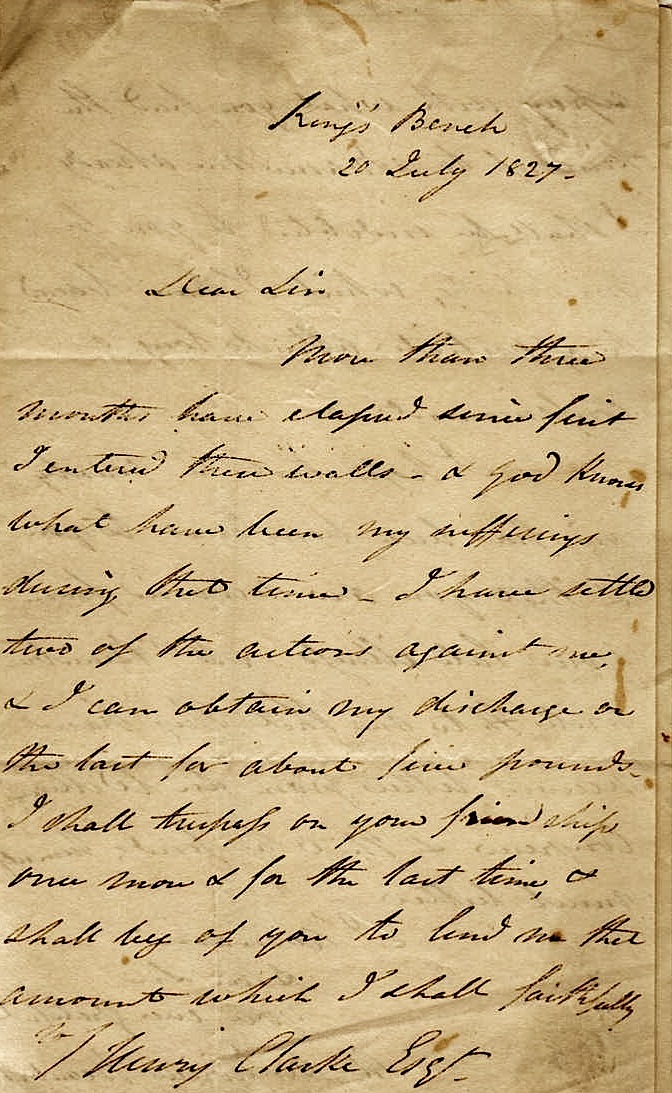 King's Bench
20 July 1827.
Dear Sir
More than three
months have elapsed since first
I entered these walls - & God knows
what have been my sufferings
during that time - I have settled
two of the actions against me,
& I can obtain my discharge on
the last for about five pounds.
I shall trespass on your friendship
once more & for the last time, &
shall beg of you to lend me that
amount which I shall faithfully
Henry Clarke Esqr.